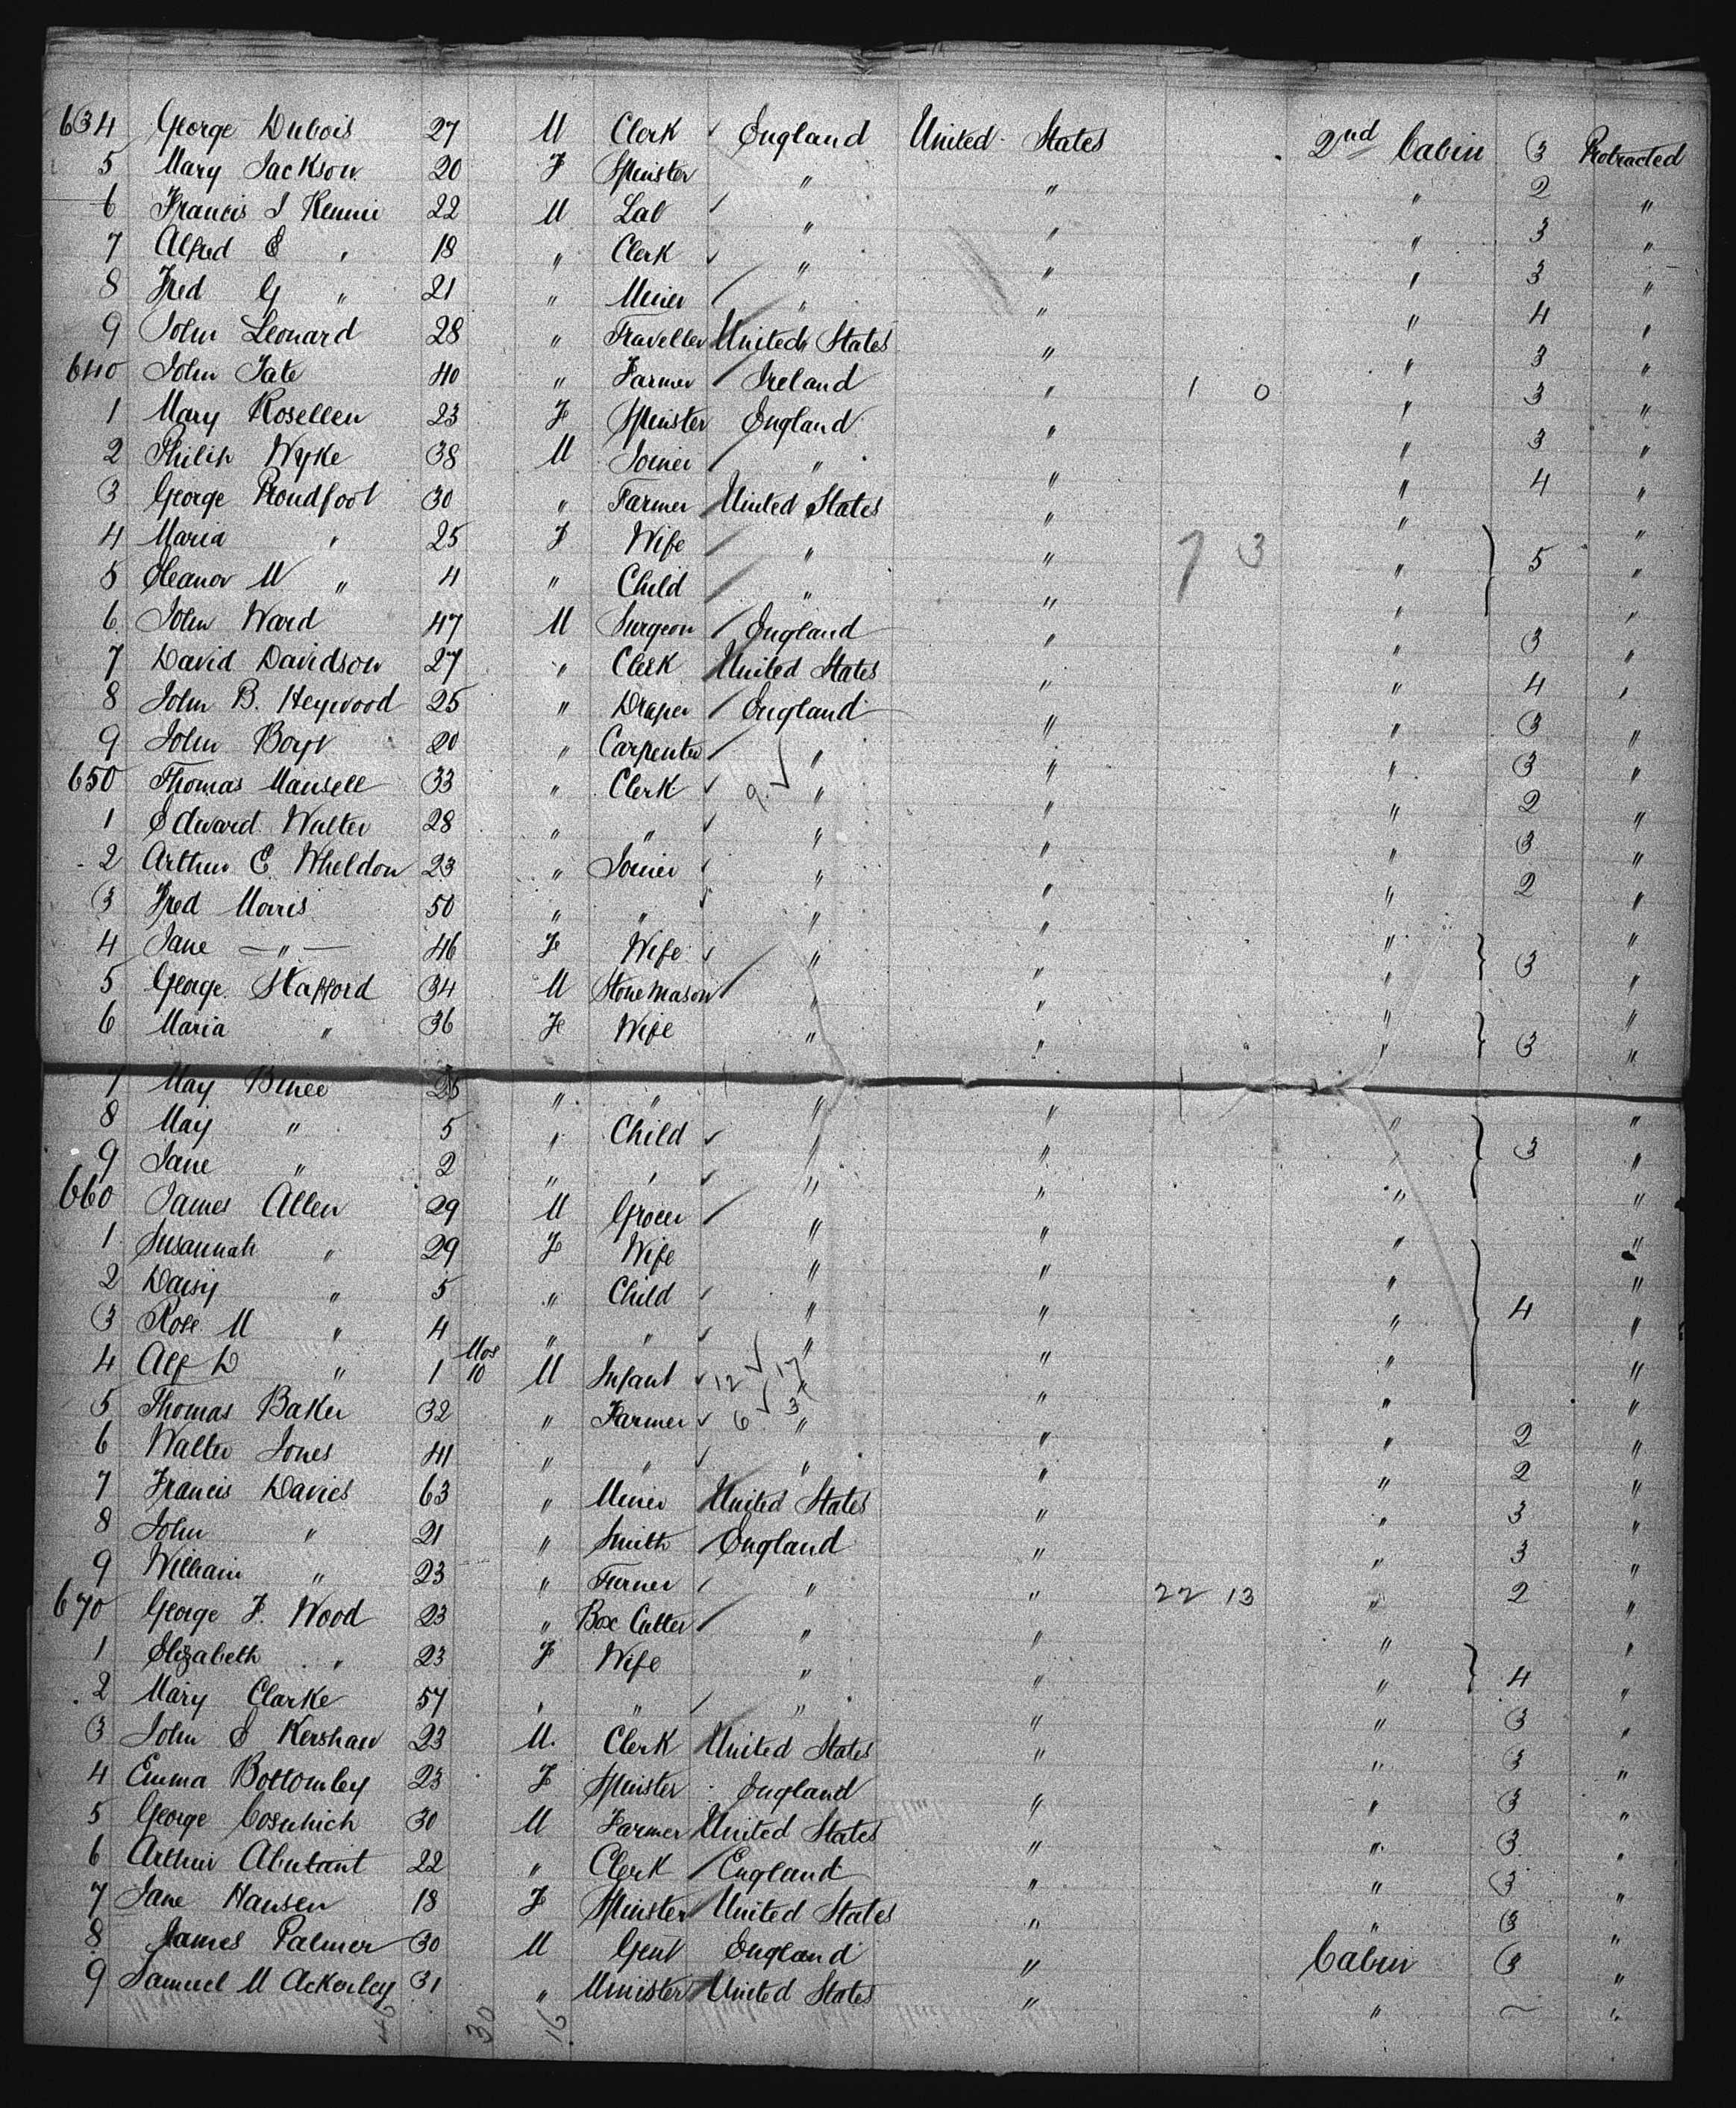 634 George Dubois 27 M Clerk ✓ England United States 2nd Cabin 3 Protracted
5 Mary Jackson 20 F Spinster " " " 2 "
6 Francis J Rennie 22 M Lab / " " " 3 "
7 Alfred E " 18 " Clerk ✓ " " " 3 "
8 Fred G " 21 " Miner / " " " 4 "
9 John Leonard 28 " Traveller United States " " 3 "
640 John Tate 40 " Farmer / Ireland " 1 0 " 3 "
1 Mary Rosellen 23 F Spinster England " " 3 "
2 Philip Wyke 38 M Joiner / " " " 4 "
3 George Proudfoot 30 " Farmer United States " " "
4 Maria " 25 F Wife / " " 7 3 " 5 "
5 Eleanor M " 4 " Child / " " " "
6 John Ward 47 M Surgeon / England " " 3 "
7 David Davidson 27 " Clerk United States " " 4 "
8 John B. Heywood 25 " Draper / England " " 3 "
9 John 20 " Carpenter / " " " 3 "
650 Thomas Mansell 33 " Clerk ✓ 9 ✓ " " " 2 "
1 Edward Walter 28 " " ✓ " " " 3 "
2 Arthur E Wheldon 23 " Joiner ✓ " " " 2 "
3 Fred Morris 50 " " ✓ " " " "
4 Jane — " — 46 F Wife ✓ " " " 3 "
5 George Stafford 34 M Stone Mason / " " " "
6 Maria " 36 F Wife " " " 3 "
7 May Bruce 26 " " " " " "
8 May " 5 " Child ✓ " " " 3 "
9 Jane " 2 " " ✓ " " " "
660 James Allen 29 M Grocer / " " " "
1 Susannah " 29 F Wife " " " "
2 Daisy " 5 " Child ✓ " " " 4 "
3 Rose M " 4 " " ✓ " " " "
4 Alf D " 1 Mos 10 M Infant ✓ 12 ✓ 17 " " " "
5 Thomas Baker 32 " Farmer ✓ 6 ✓ 3 " " " 2 "
6 Walter Jones 41 " " ✓ " " " 2 "
7 Francis Davies 63 " Miner United States " " 3 "
8 John " 21 " Smith / England " " 3 "
9 William " 23 " Turner / " " 22 13 " 2 "
670 George F. Wood 23 " Box Cutter / " " " "
1 Elizabeth " 23 F Wife " " " 4 "
2 Mary Clarke 57 " " / " " " 3 "
3 John E Kershaw 23 M. Clerk United States " " 3 "
4 Emma Bottomley 23 F Spinster England " " 3 "
5 George 30 M Farmer United States " " 3 "
6 Arthur 22 " Clerk / England " " 3 "
7 Jane Hansen 18 F Spinster United States " " 3 "
8 James Palmer 30 M Gent England " Cabin 3 "
9 Samuel M Ackerley 31 " Minister United States " " ~ "
46 30 16